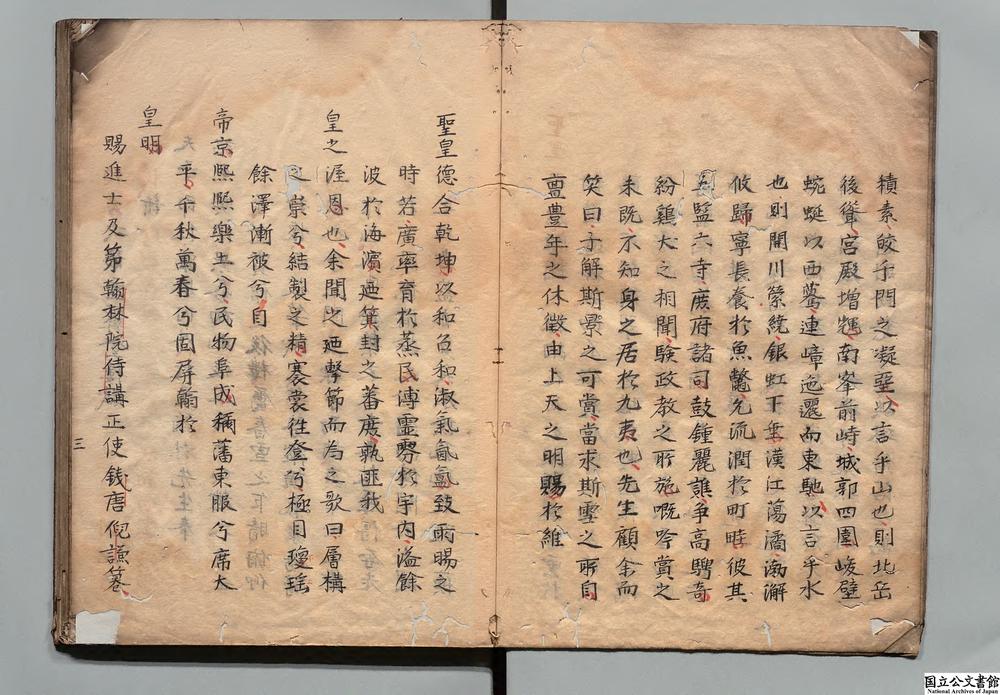 積素皎千門之凝堊以言乎山也則北岳
後聳宮殿增輝南峯前峙城郭四圍峻壁
蜿蜒以西驀連嶂迤邐而東馳以言乎水
也則開川縈繞銀虹下垂漢江蕩潏渤澥
攸歸寧長養於魚鼈允流潤於町畦彼其
監六寺庶府諸司鼓鍾麗譙爭高騁奇
紛鷄犬之相聞驗政教之所施嘅吟賞之
未既不知身之居於九夷也先生顧余而
笑曰子解斯景之可賞當求斯雪之所自
亶豊年之休徵由上天之明賜於維
聖皇德合乾坤以和召和淑氣氤氳致雨暘之
時若廣率育於蒸民溥霊雰於宇内溢餘
波於海濵廼箕封之蕃庶孰匪我
皇之渥恩也余聞之廼擊節而為之歌曰層構
之崇兮結製之精褰裳徃登兮極目瓊瑶
餘澤漸被兮自
帝京熈熈樂土兮民物阜成稱藩東服兮席大
平千秋萬春兮固屏翰於
皇明
賜進士及第翰林院侍講正使錢唐倪謙篹
三
国立公文書館
National Archives of Japan